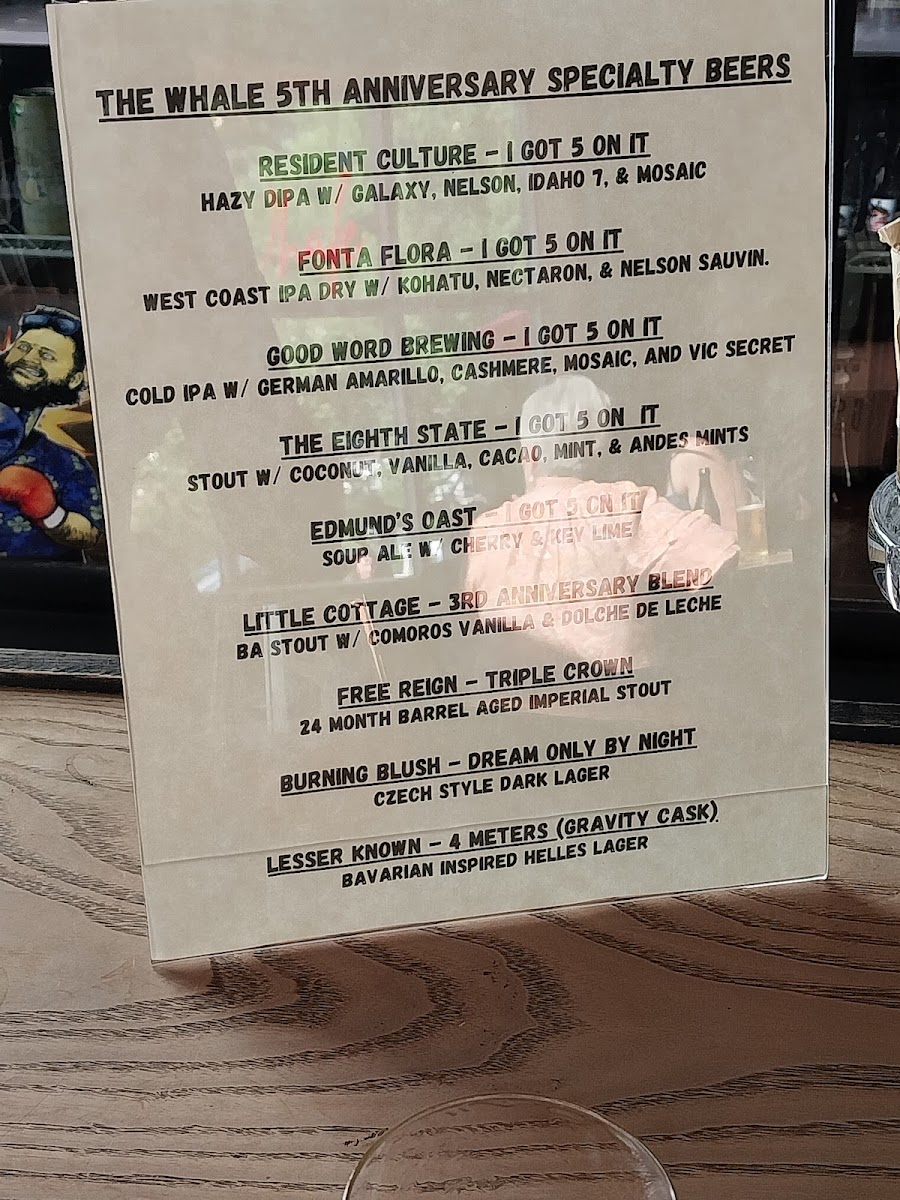 THE WHALE 5TH ANNIVERSARY SPECIALTY BEERS
RESIDENT CULTURE - I GOT 5 ON IT
HAZY DIPA W/ GALAXY, NELSON, IDAHO 7, & MOSAIC
FONTA FLORA - I GOT 5 ON IT
WEST COAST IPA DRY W/ KOHATU, NECTARON, & NELSON SAUVIN.
GOOD WORD BREWING - I GOT 5 ON IT
COLD IPA W/ GERMAN AMARILLO, CASHMERE, MOSAIC, AND VIC SECRET
THE EIGHTH STATE - I GOT 5 ON IT
STOUT W/ COCONUT, VANILLA, CACAO, MINT, & ANDES MINTS
EDMUND'S OAST - I GOT 5 ON IT
SOUR ALE W/ CHERRY & KEY LIME
LITTLE COTTAGE - 3RD ANNIVERSARY BLEND
BA STOUT W/ COMOROS VANILLA & DOLCHE DE LECHE
FREE REIGN - TRIPLE CROWN
24 MONTH BARREL AGED IMPERIAL STOUT
BURNING BLUSH - DREAM ONLY BY NIGHT
CZECH STYLE DARK LAGER
LESSER KNOWN - 4 METERS (GRAVITY CASK)
BAVARIAN INSPIRED HELLES LAGER